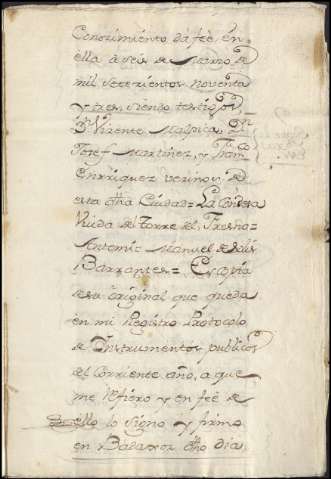 Conocimiento da feè, en
ella à seis de Marzo de
mil setecientos noventa
y tres, siendo testigos
Dn Vicente Malpica, Dn
Josef Martinez, y Franco
Enrriquez vecinos de
esta dha Ciudad= La Condesa
Viuda de Torre del Fresno=
Antonio Manuel de Solis
i Barrantes=, Es copia
de su original que queda
en mi Registro Protocolo
de Instrumentos publicos
del Corriente año, a que
me refiero y en feè de
ello lo signo y firmo
en Badaxoz dho dia